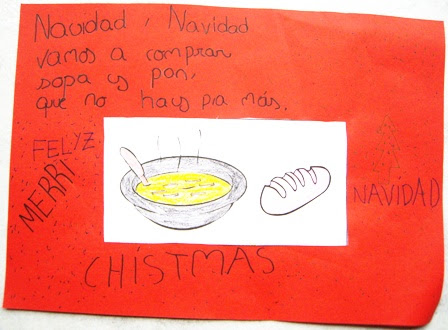 Navidad, Navidad
vamos a comprar
sopa y pan,
que no hay pia más.
FELYZ
MERRI
NAVIDAD
CHISTMAS